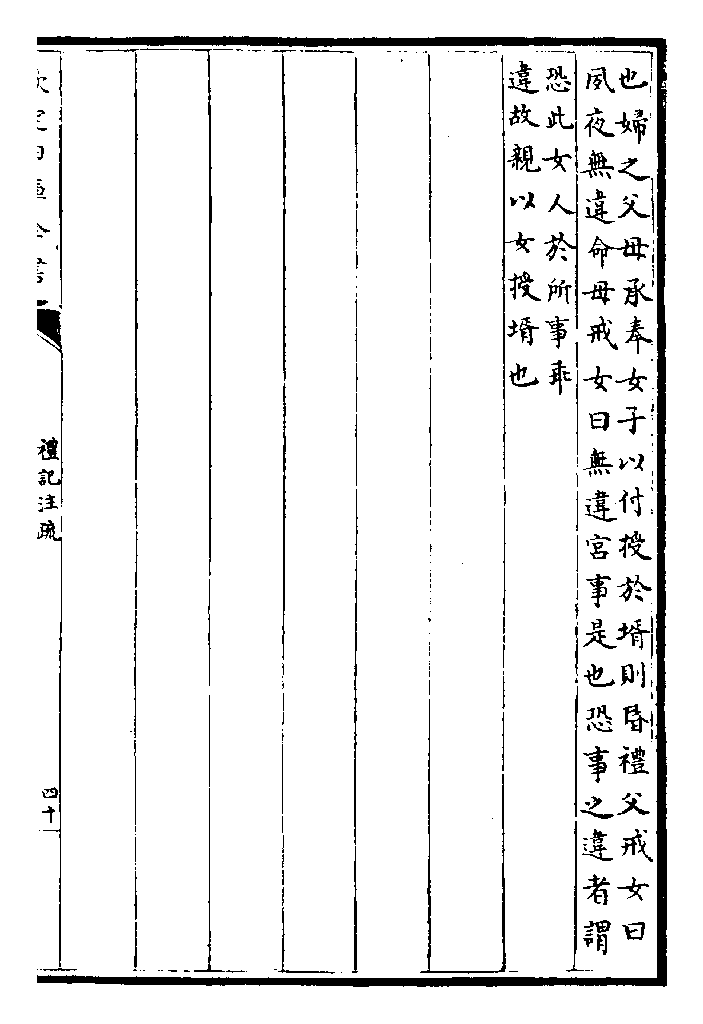 也婦之父母承奉女子以付授於壻則昏禮父戒女曰
夙夜無違命母戒女曰無違宮事是也恐事之違者謂
恐此女人於所事乖
違故親以女授壻也
禮記注疏
四十